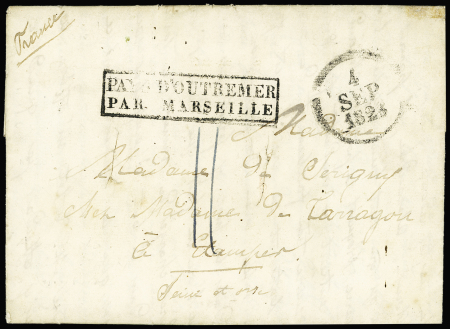 France
PAYS D'OUTREMER
PAR MARSEILLE
4
SEP
182
Madame
Madame de Serigny
chez Madame de Tarragon
à Etampes
Seine et oise